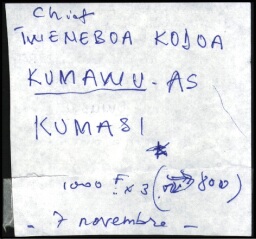 Chief
TWENEBOA KODOA
KUMAWU-AS
KUMASI
1000 F x 3 ( 800)
- 7 novembre -